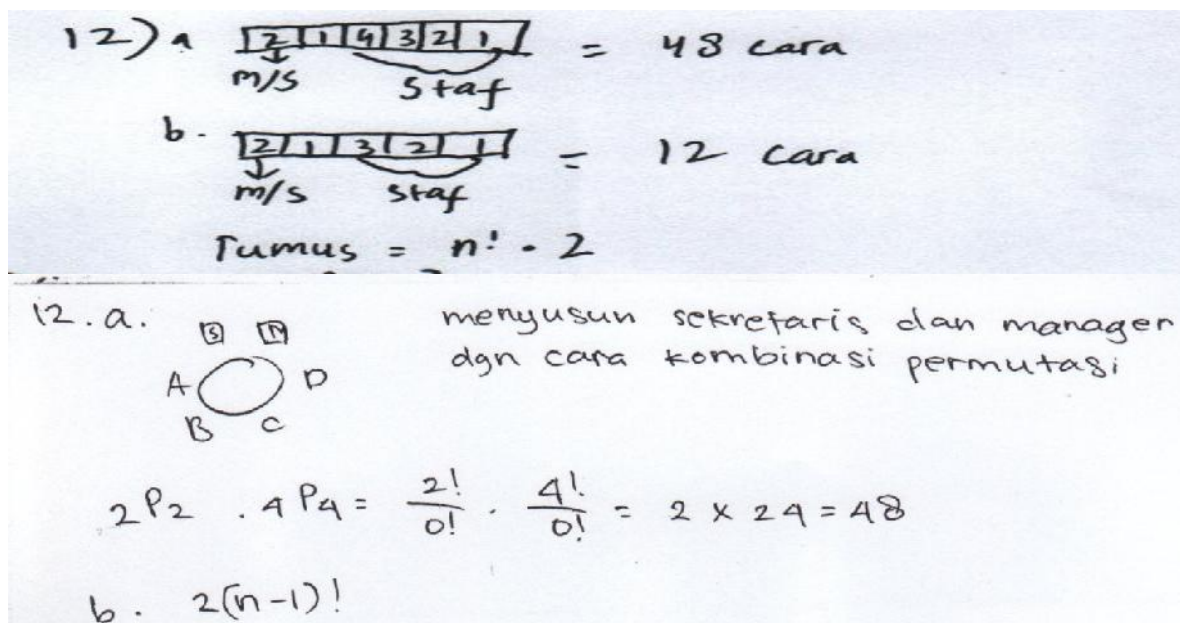 12) a |2|1|4|3|2|1| = 48 cara
m/s staf
b. |2|1|3|2|1| = 12 cara
m/s staf
rumus = n! . 2
12. a. S M menyusun sekretaris dan manager
A D dgn cara kombinasi permutasi
B C
2P2 . 4P4 = 2!/0! . 4!/0! = 2 x 24 = 48
b. 2(n-1)!